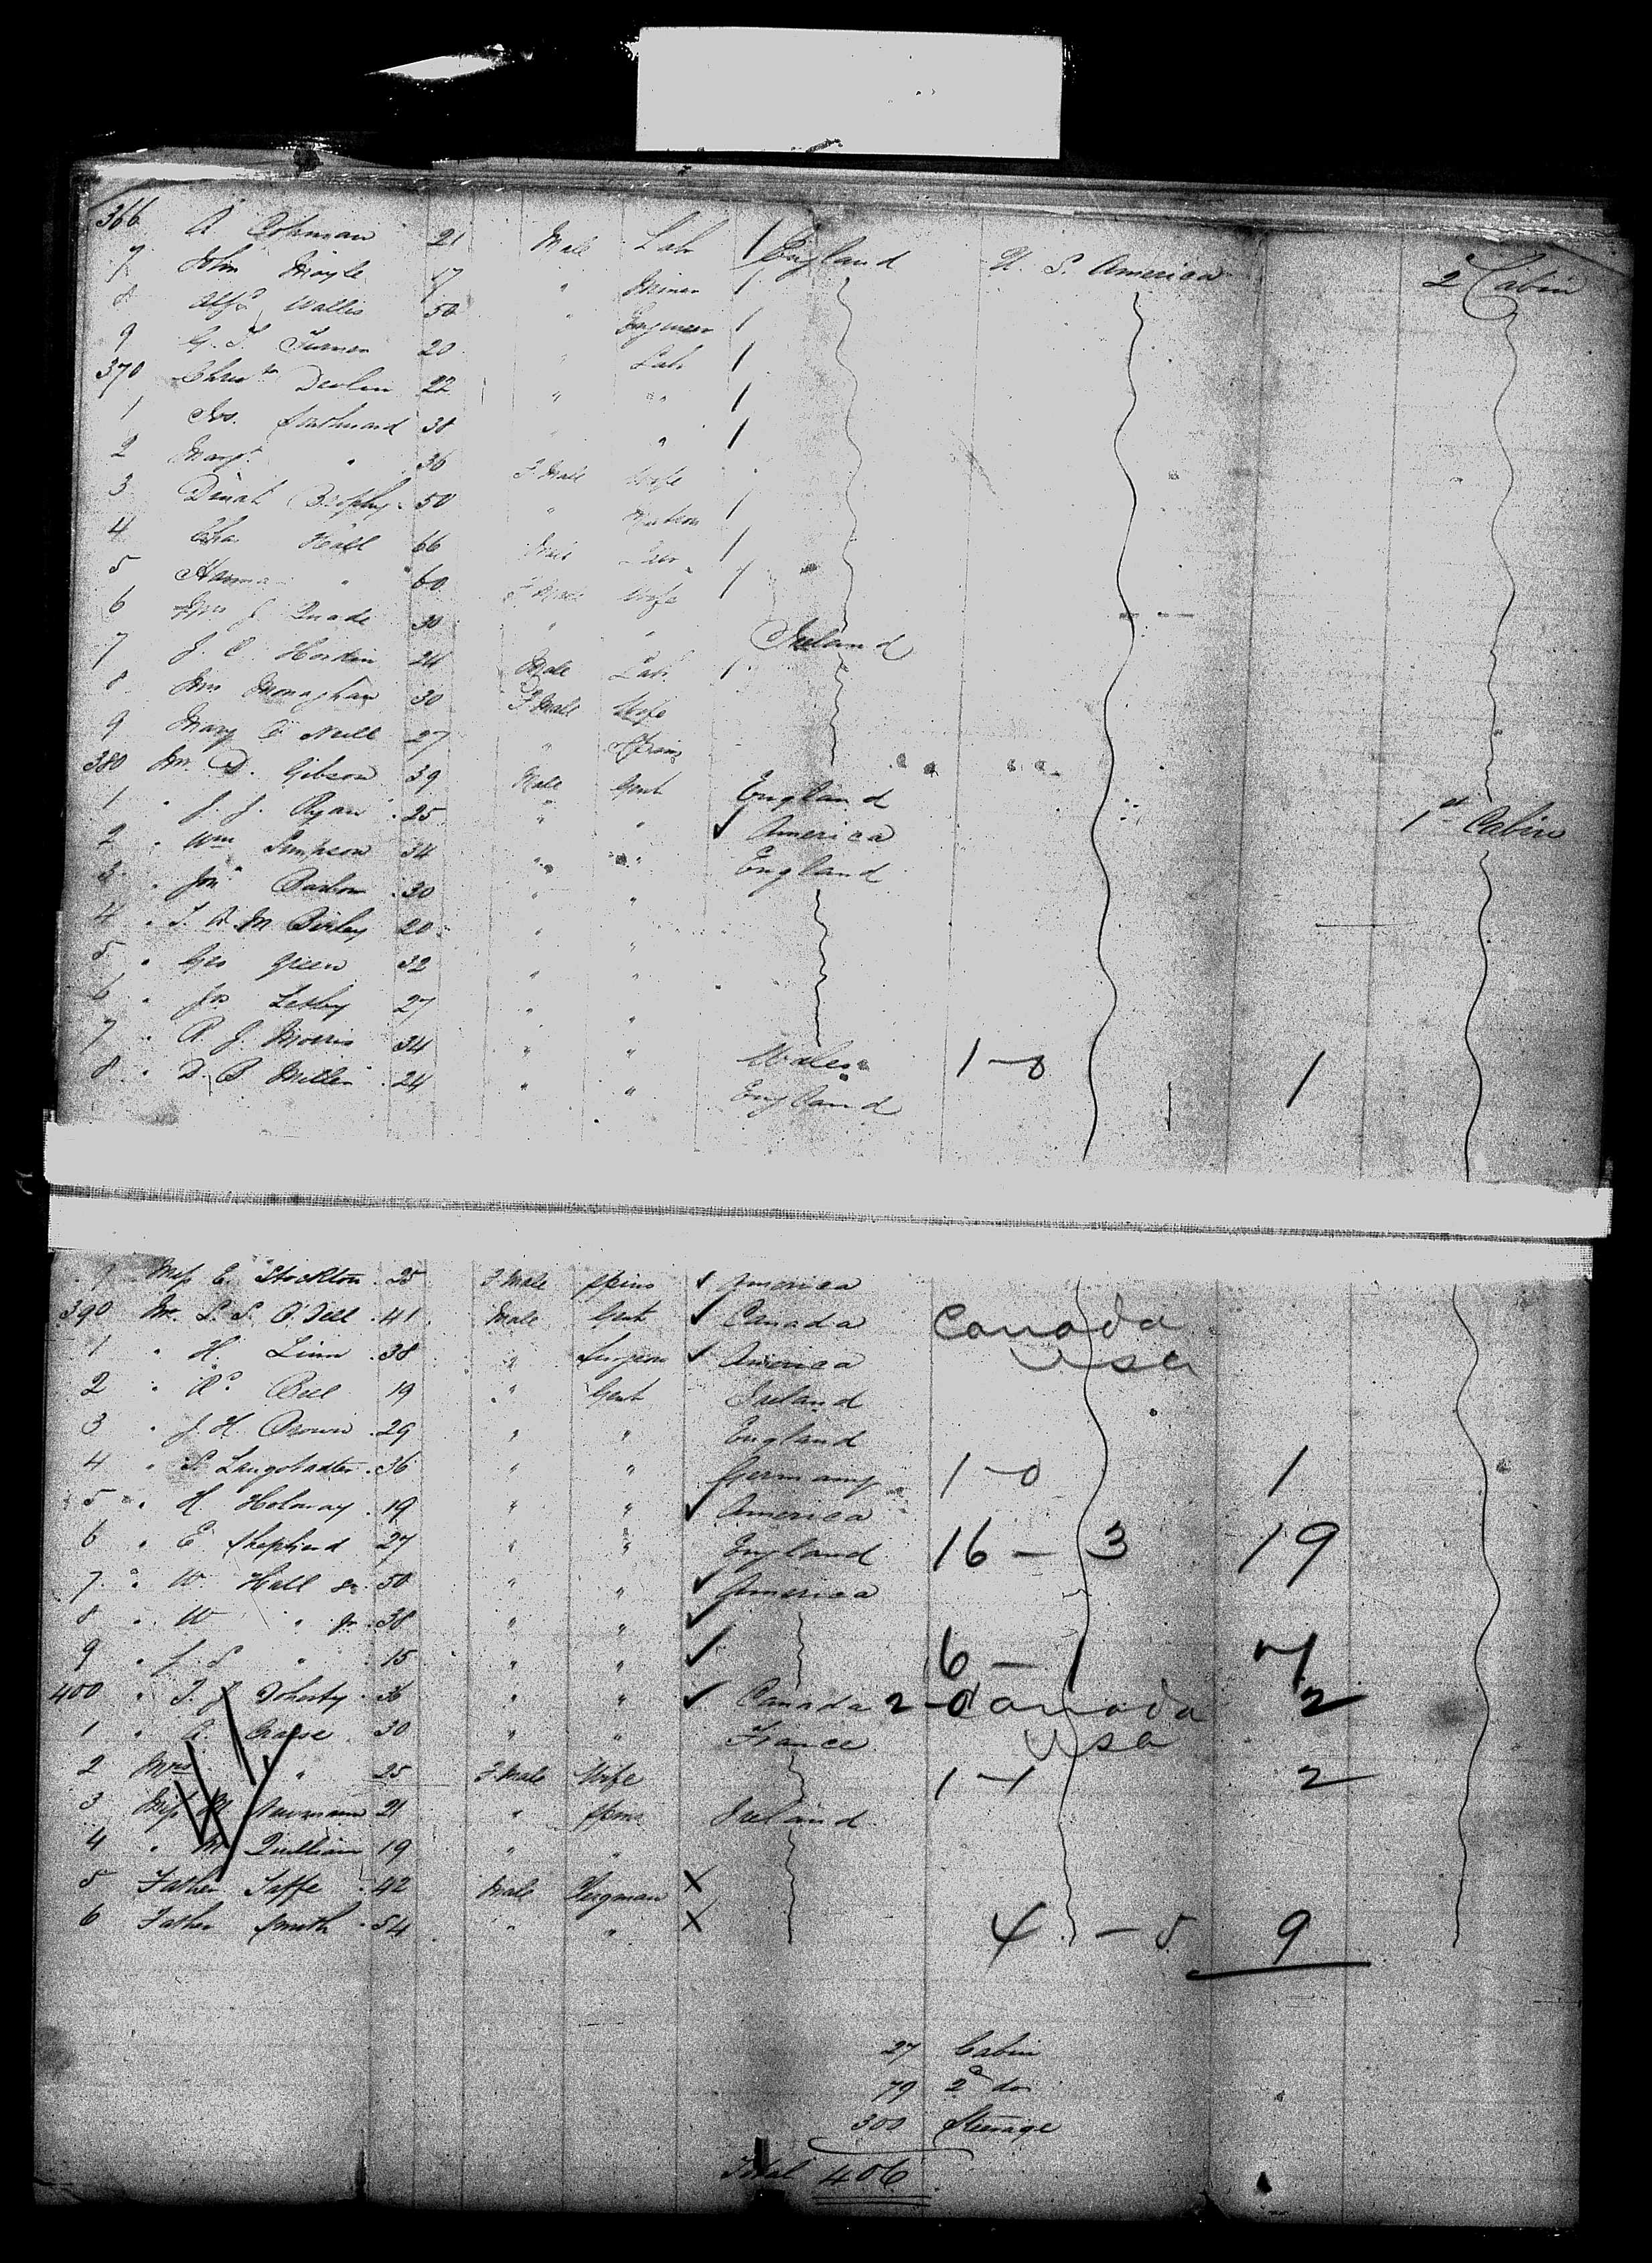 366 A 21 Male Lab England U. S. America 2 Cabin
7 John Moyle 17 " Miner
8 Alfd Wallis 50 " Engineer
9 G. T. Turner 20 " Lab
370 Christr Devlin 22 " "
1 Jos. Southward 38 " "
2 Margt " 36 F. Male Wife
3 Dinah Brophy 50 "
4 Cha Hall 66 Male
5 " 60 F. Male Wife
6 Mrs J Quade 30 " " Ireland
7 J. C. Hoskin 24 Male Lab
8 Mrs Monaghan 30 F Male Wife
9 Mary O Neill 27 " Spins
380 Mr. D. Gibson 39 Male Gent England
1 " J. J. Ryan 25 " " America 1st Cabin
2 " Wm Simpson 34 " " England
3 " Jno Barlow 30 " "
4 " T. A. M Birley 20 " "
5 " Geo Green 32 " "
6 " Jos Lesley 27 " "
7 " R. J. Morris 34 " " Wales 1-0 1
8 " D. B Miller 24 " " England
9 Miss E. Stockton 25 F Male Spins America
390 Mr. S. S. O'Dell 41 Male Gent Canada Canada
1 " H. Linn 38 " Surgeon America USA
2 " Rd. Bell 19 " Gent Ireland
3 " J. H. Brown 29 " " England
4 " S. Langstadter 36 " " Germany 1-0 1
5 " H Holway 19 " " America
6 " E Shepherd 27 " " England 16 - 3 19
7 " W. Hall Sr. 50 " " America
8 " W " Jr. 38 " "
9 " J. S " 15 " " 6 - 1 7
400 " T. J Doherty 36 " " Canada 2-0 Canada 2
1 " R. 30 " " France USA
2 Mrs " 25 F Male Wife 1-1 2
3 Miss M 21 " Spins Ireland
4 " M Quillian 19 " "
5 Father Taffe 42 Male Clergman X
6 Father Smith 54 " " X 4 - 5 9
27 Cabin
79 2d do
300 Steerage
Total 406